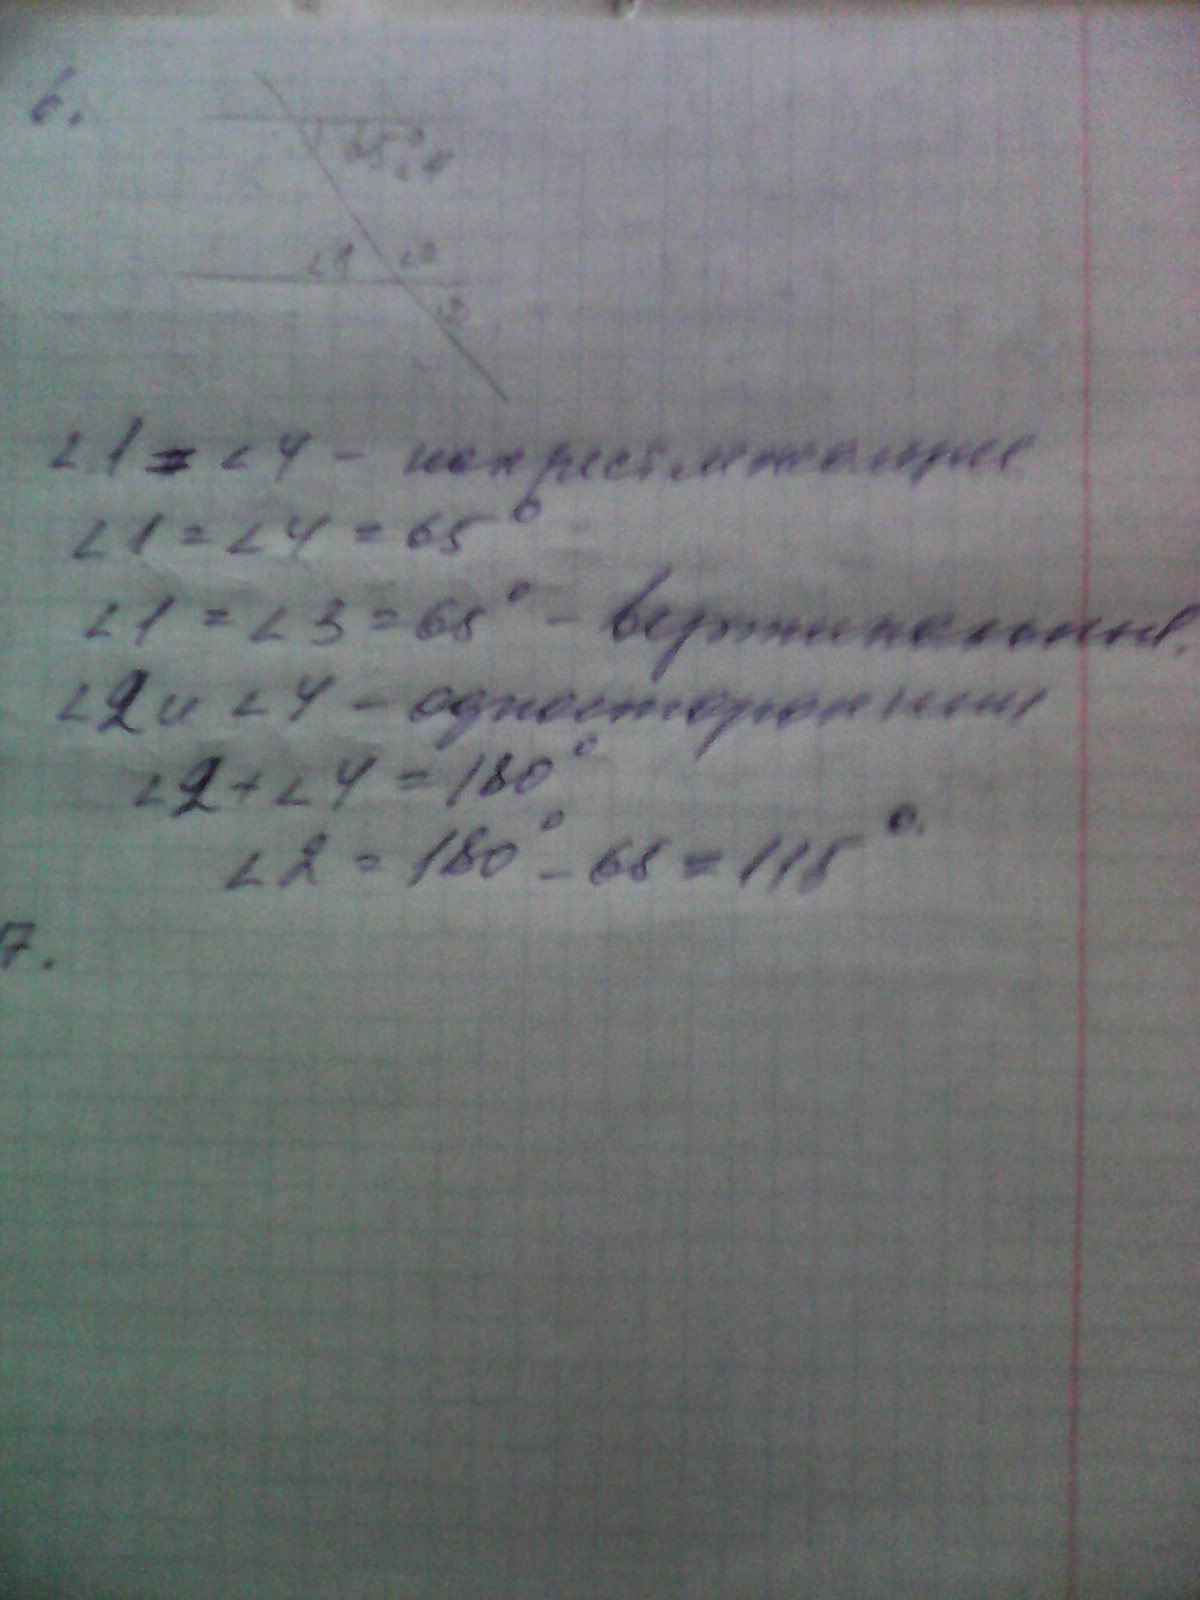 6.
65° ∠4
∠1 ∠2
∠3
∠1 = ∠4 - накрест лежащие
∠1 = ∠4 = 65°
∠1 = ∠3 = 65° - вертикальные.
∠2 и ∠4 - односторонние
∠2 + ∠4 = 180°
∠2 = 180° - 65 = 115°.
7.